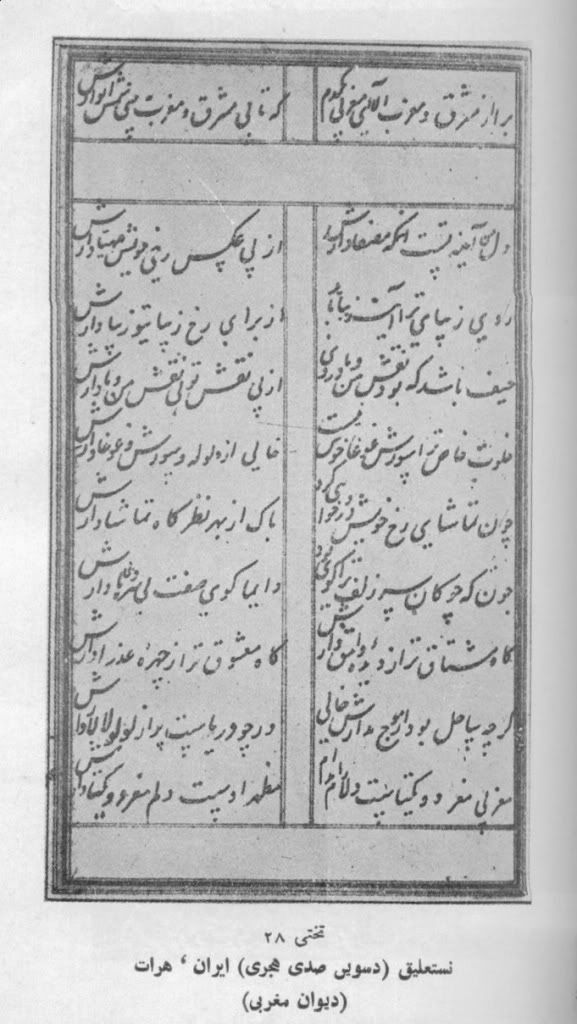 بر از مشرق و مغرب الا ای مغربی یکدم که تا بی مشرق و مغرب ببینی انوارش
دل من آینه تست انکه مصفا دارش از پی عکس رخ خویش مهیا دارش
روی زیبای ترا آینه زیبا باید از برای رخ زیبا تو زیبا دارش
حیف باشد که بود نقش من و ما در وی از پی نقش تو بی نقش من و ما دارش
خلوت خاص ترا شورش و غوغا خوش نیست خالی از ولوله و شورش و غوغا دارش
چون تماشای رخ خویش درو خواهی کرد پاک از بهر نظر کاه تماشا دارش
چون که چوکان سر زلف ترا کوی دایما کوی صفت بی سر و پا دارش
کاه مشتاق تر از دیده وامق دارش کاه معشوق تر از چهره عذرا دارش
کرچه ساحل بود از موج مدارش خالی ور چو دریاست پر از لولو لالا دارش
مغربی مفرد و یکتاست دلارام مظهر اوست دلم مفرد و یکتا دارش
تختی ۲۸
نستعلیق (دسویں صدی هجری) ایران ، هرات
(دیوان مغربی)